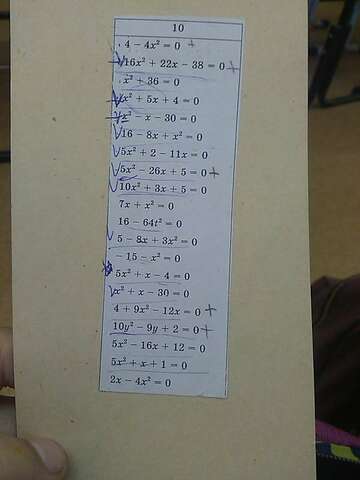 10
4 − 4x² = 0 +
16x² + 22x − 38 = 0 +
x² + 36 = 0
x² + 5x + 4 = 0
x² − x − 30 = 0
16 − 8x + x² = 0
5x² + 2 − 11x = 0
5x² − 26x + 5 = 0 +
10x² + 3x + 5 = 0
7x + x² = 0
16 − 64t² = 0
5 − 8x + 3x² = 0
−15 − x² = 0
5x² + x − 4 = 0
x² + x − 30 = 0
4 + 9x² − 12x = 0 +
10y² − 9y + 2 = 0 +
5x² − 16x + 12 = 0
5x² + x + 1 = 0
2x − 4x² = 0